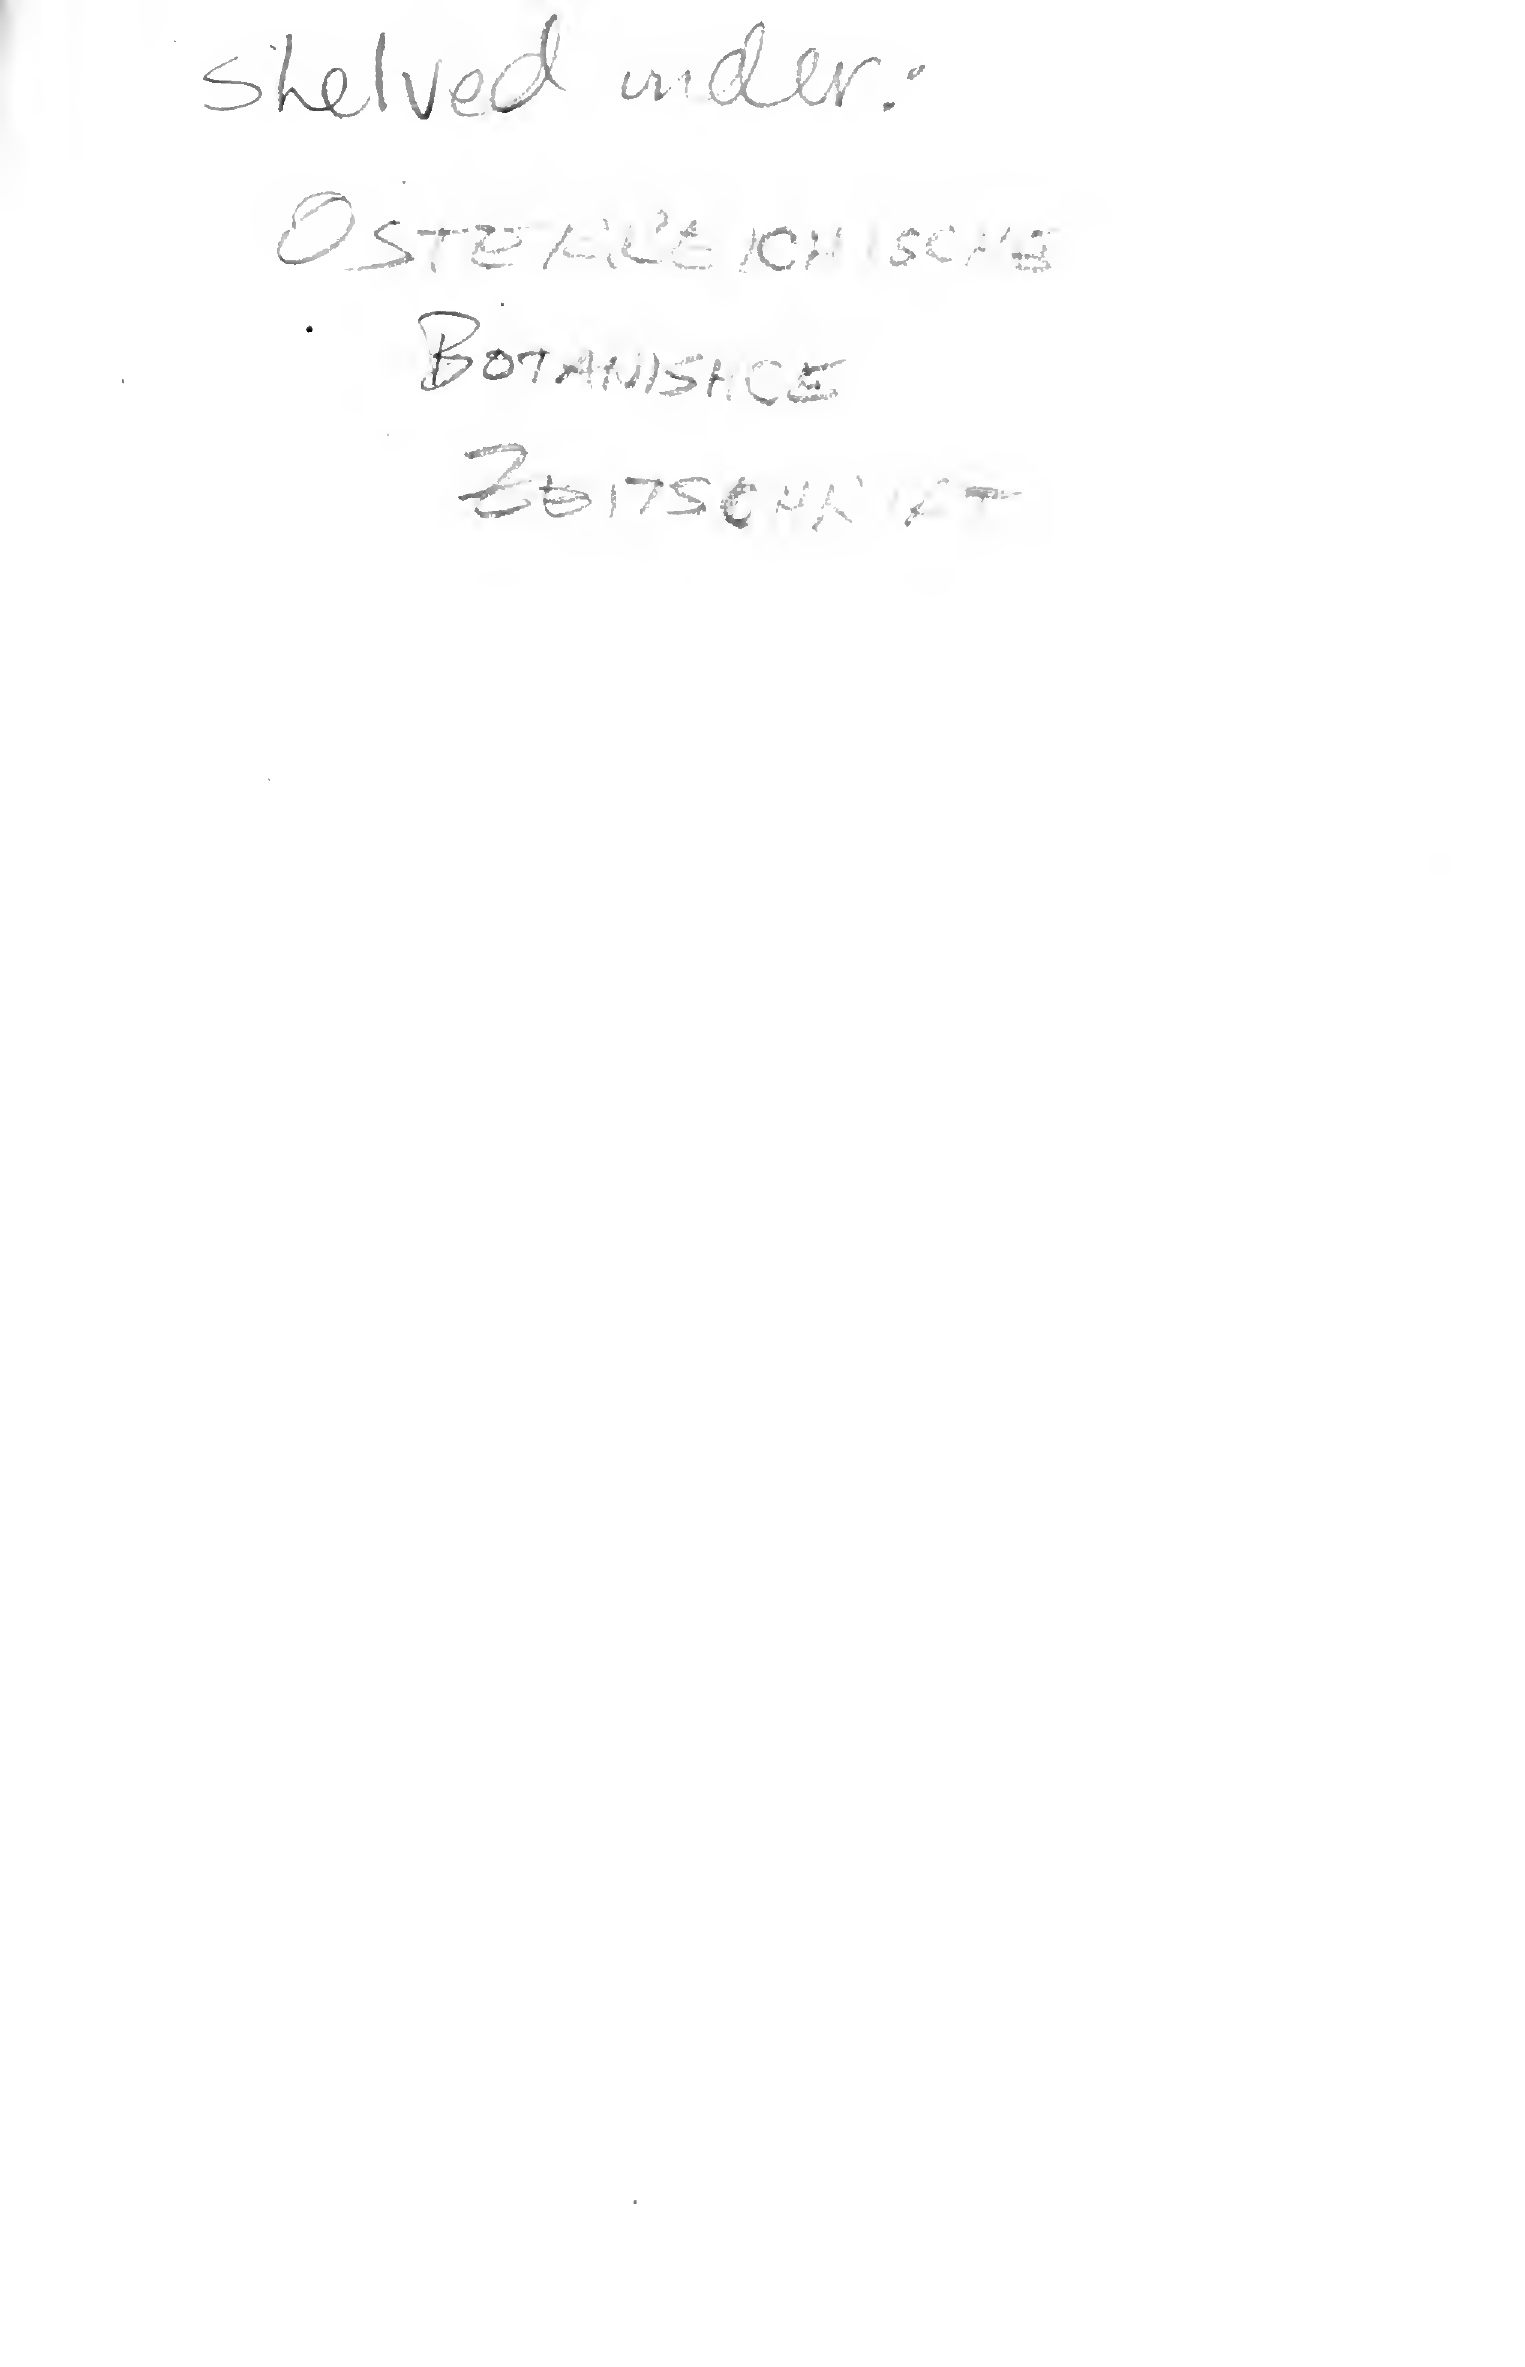 Shelved under:
OSTERREICHISCHE
BOTANISHCE
ZEITSCHRIFT